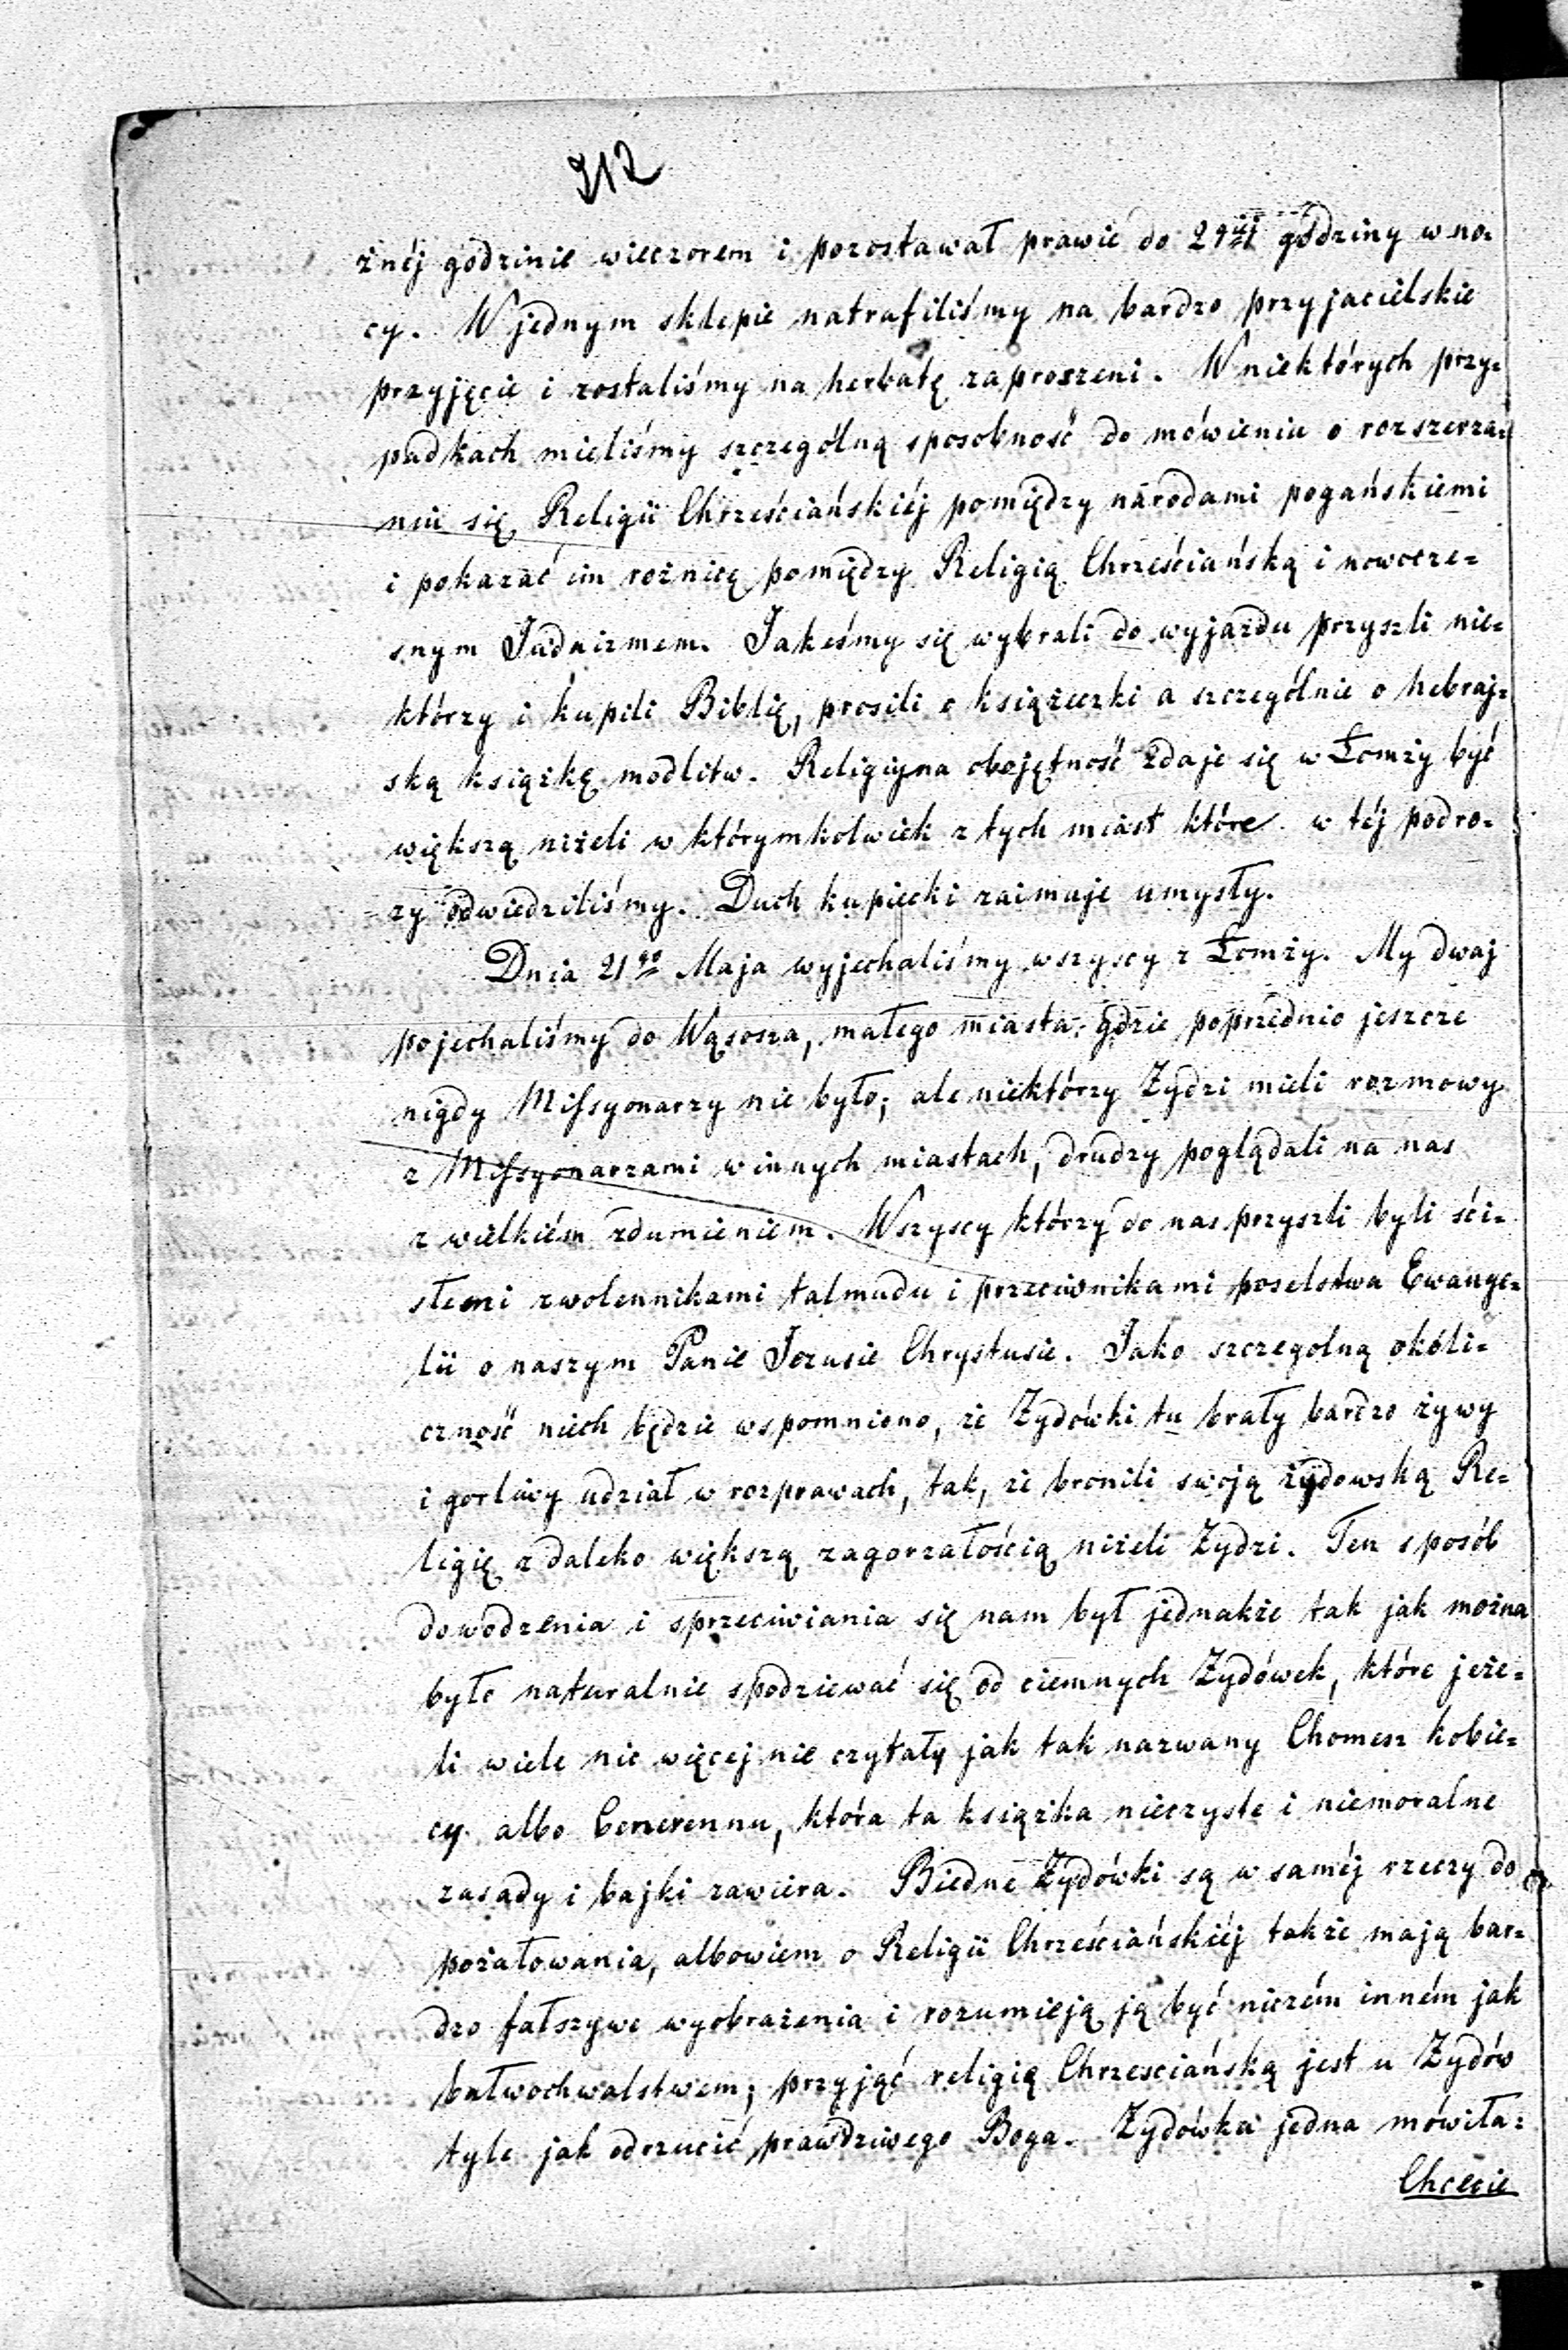 212
żnéj godzinie wieczorem i pozostawał prawie do 21éj godziny w no-
cy. W jednym sklepie natrafiliśmy na bardzo przyjacielskie
przyjęcie i zostaliśmy na herbatę zaproszeni. W niektórych przy-
padkach mieliśmy szczególną sposobność do mówienia o rozszerza-
niu się Religii Chrześciańskiéj pomiędzy narodami pogańskiemi
i pokazać im rożnicę pomiędzy Religią Chrześciańską i nowocze-
snym Judaizmem. Jakeśmy się wybrali do wyjazdu przyszli nie-
którzy i kupili Biblię, prosili o książeczki a szczególnie o hebraj-
ską książkę modlitw. Religiyna obojętność zdaje się w Łomży być
większą niżeli w którymkolwiek z tych miast które w téj podro-
ży odwiedziliśmy. Duch kupiecki zaimuje umysły.
Dnia 21go Maja wyjechaliśmy wszyscy z Łomży. My dwaj
pojechaliśmy do Wąsosza, małego miasta, gdzie poprzednio jeszcze
nigdy Missyonarzy nie było; ale niektórzy Żydzi mieli rozmowy
z Missyonarzami w innych miastach, drudzy poglądali na nas
z wielkiém zdumieniem. Wszyscy którzy do nas przyszli byli ści-
słemi zwolennikami talmudu i przeciwnikami poselstwa Ewange-
lii o naszym Panie Jezusie Chrystusie. Jako szczególną okóli-
czność niech będzie wspomniono, że Żydówki tu brały bardzo żywy
i gorliwy udział w rozprawach, tak, że bronili swoją żydowską Re-
ligię z daleko większą zagorzałością niżeli Żydzi. Ten sposób
dowodzenia i sprzeciwiania się nam był jednakże tak jak można
było naturalnie spodziewać się od ciemnych Żydówek, które jeże-
li wiele nic więcej nie czytały jak tak nazwany Chomesz kobie-
cy albo Cenerennu, która ta książka nieczyste i niemoralne
zasady i bajki zawiera. Biedne Żydówki są w saméj rzeczy do
pożałowania, albowiem o Religii Chrześciańskiéj także mają bar-
dzo fałszywe wyobrażenia i rozumieją ją być niczém inném jak
bałwochwalstwem; przyjąć religią Chrzesciańską jest u Żydów
tyle jak odrzucić prawdziwego Boga. Żydówka jedna mówiła:
Chcecie